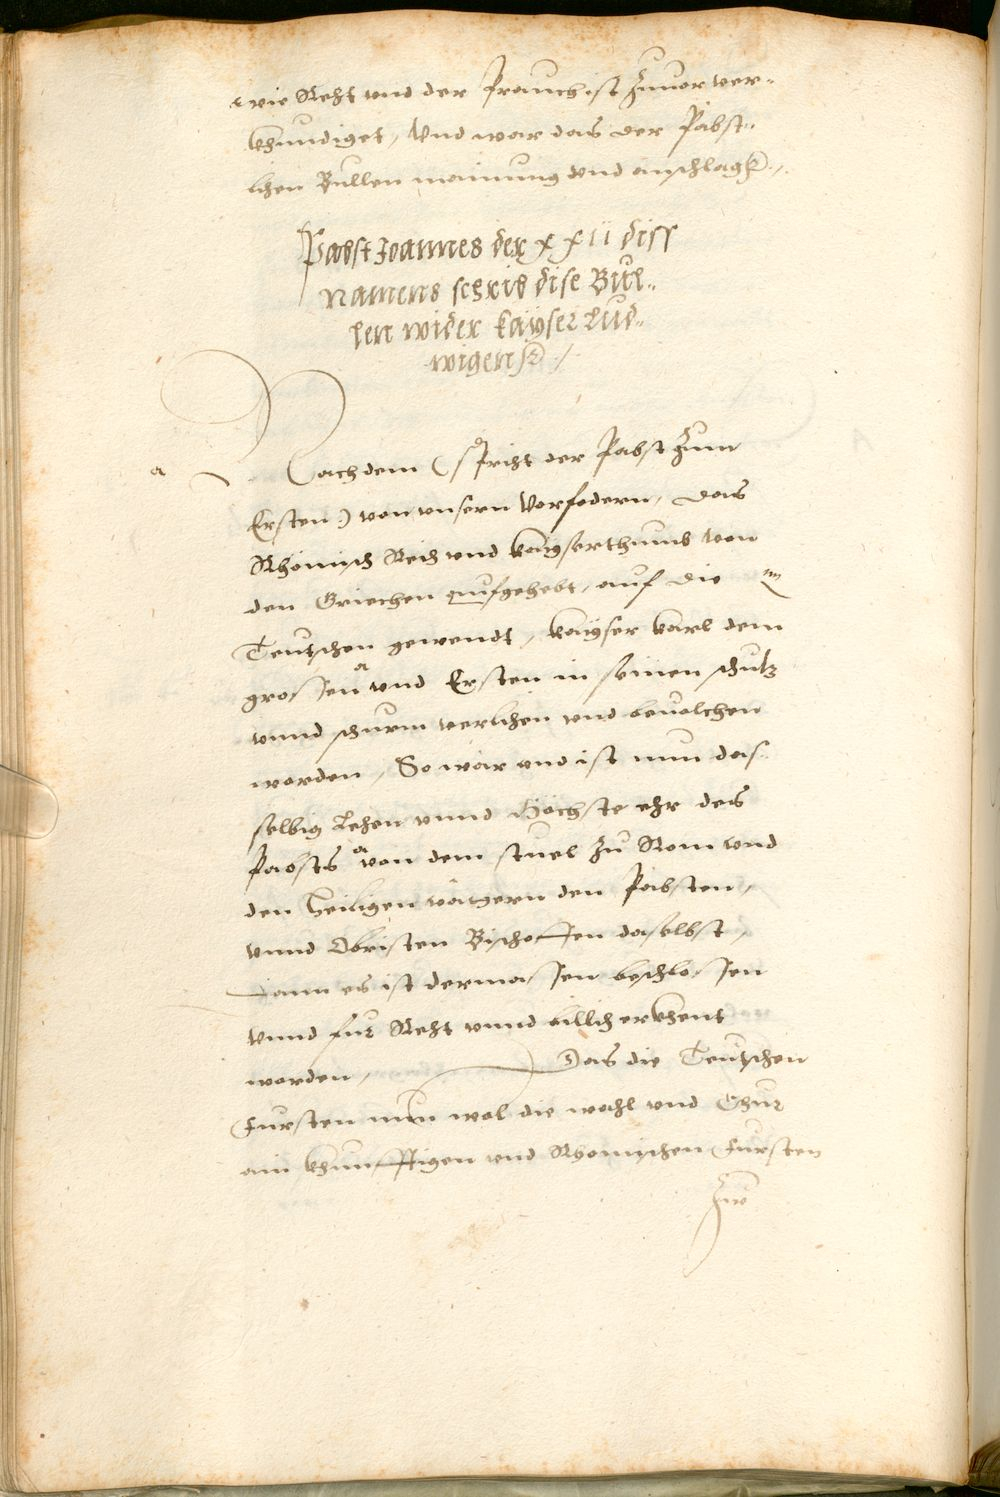 wie Recht vnd der Prauch ist Zuuor ver-
khundiget, Vnd war das der Päbst-
lichen Bullen mainung vnd anschlag.
Pabst Joannes der xxii diss
Namens schrib dise Bul-
len wider kaÿser Lud-
wigen
a Nachdem (spricht der Pabst Zum
Ersten) von vnsern Vorfodern, das
Rhömisch Reich vnd kaÿserthumb von
den Griechen aufgehebt, auf die
Teutschen gewendt, kaÿser karl dem
grossen a vnd Ersten in seinen schutz
vnnd schurm verlichen vnd beuolchen
worden, So war vnd ist nun das
selbig Lehen vnnd höchste ehr des
Pabsts a von dem stuel Zu Rom vnd
den heiligen vätgern den Päbsten,
vnnd Obristen Bischoffen daselbst,
dann es ist dermassen beschlossen
vnnd fur Recht vnnd billich erkhent
worden, Das die Teutschen
Fursten nun wol die wahl vnd Chur
ain khunfftigen vnd Rhomischen Fursten
Zw